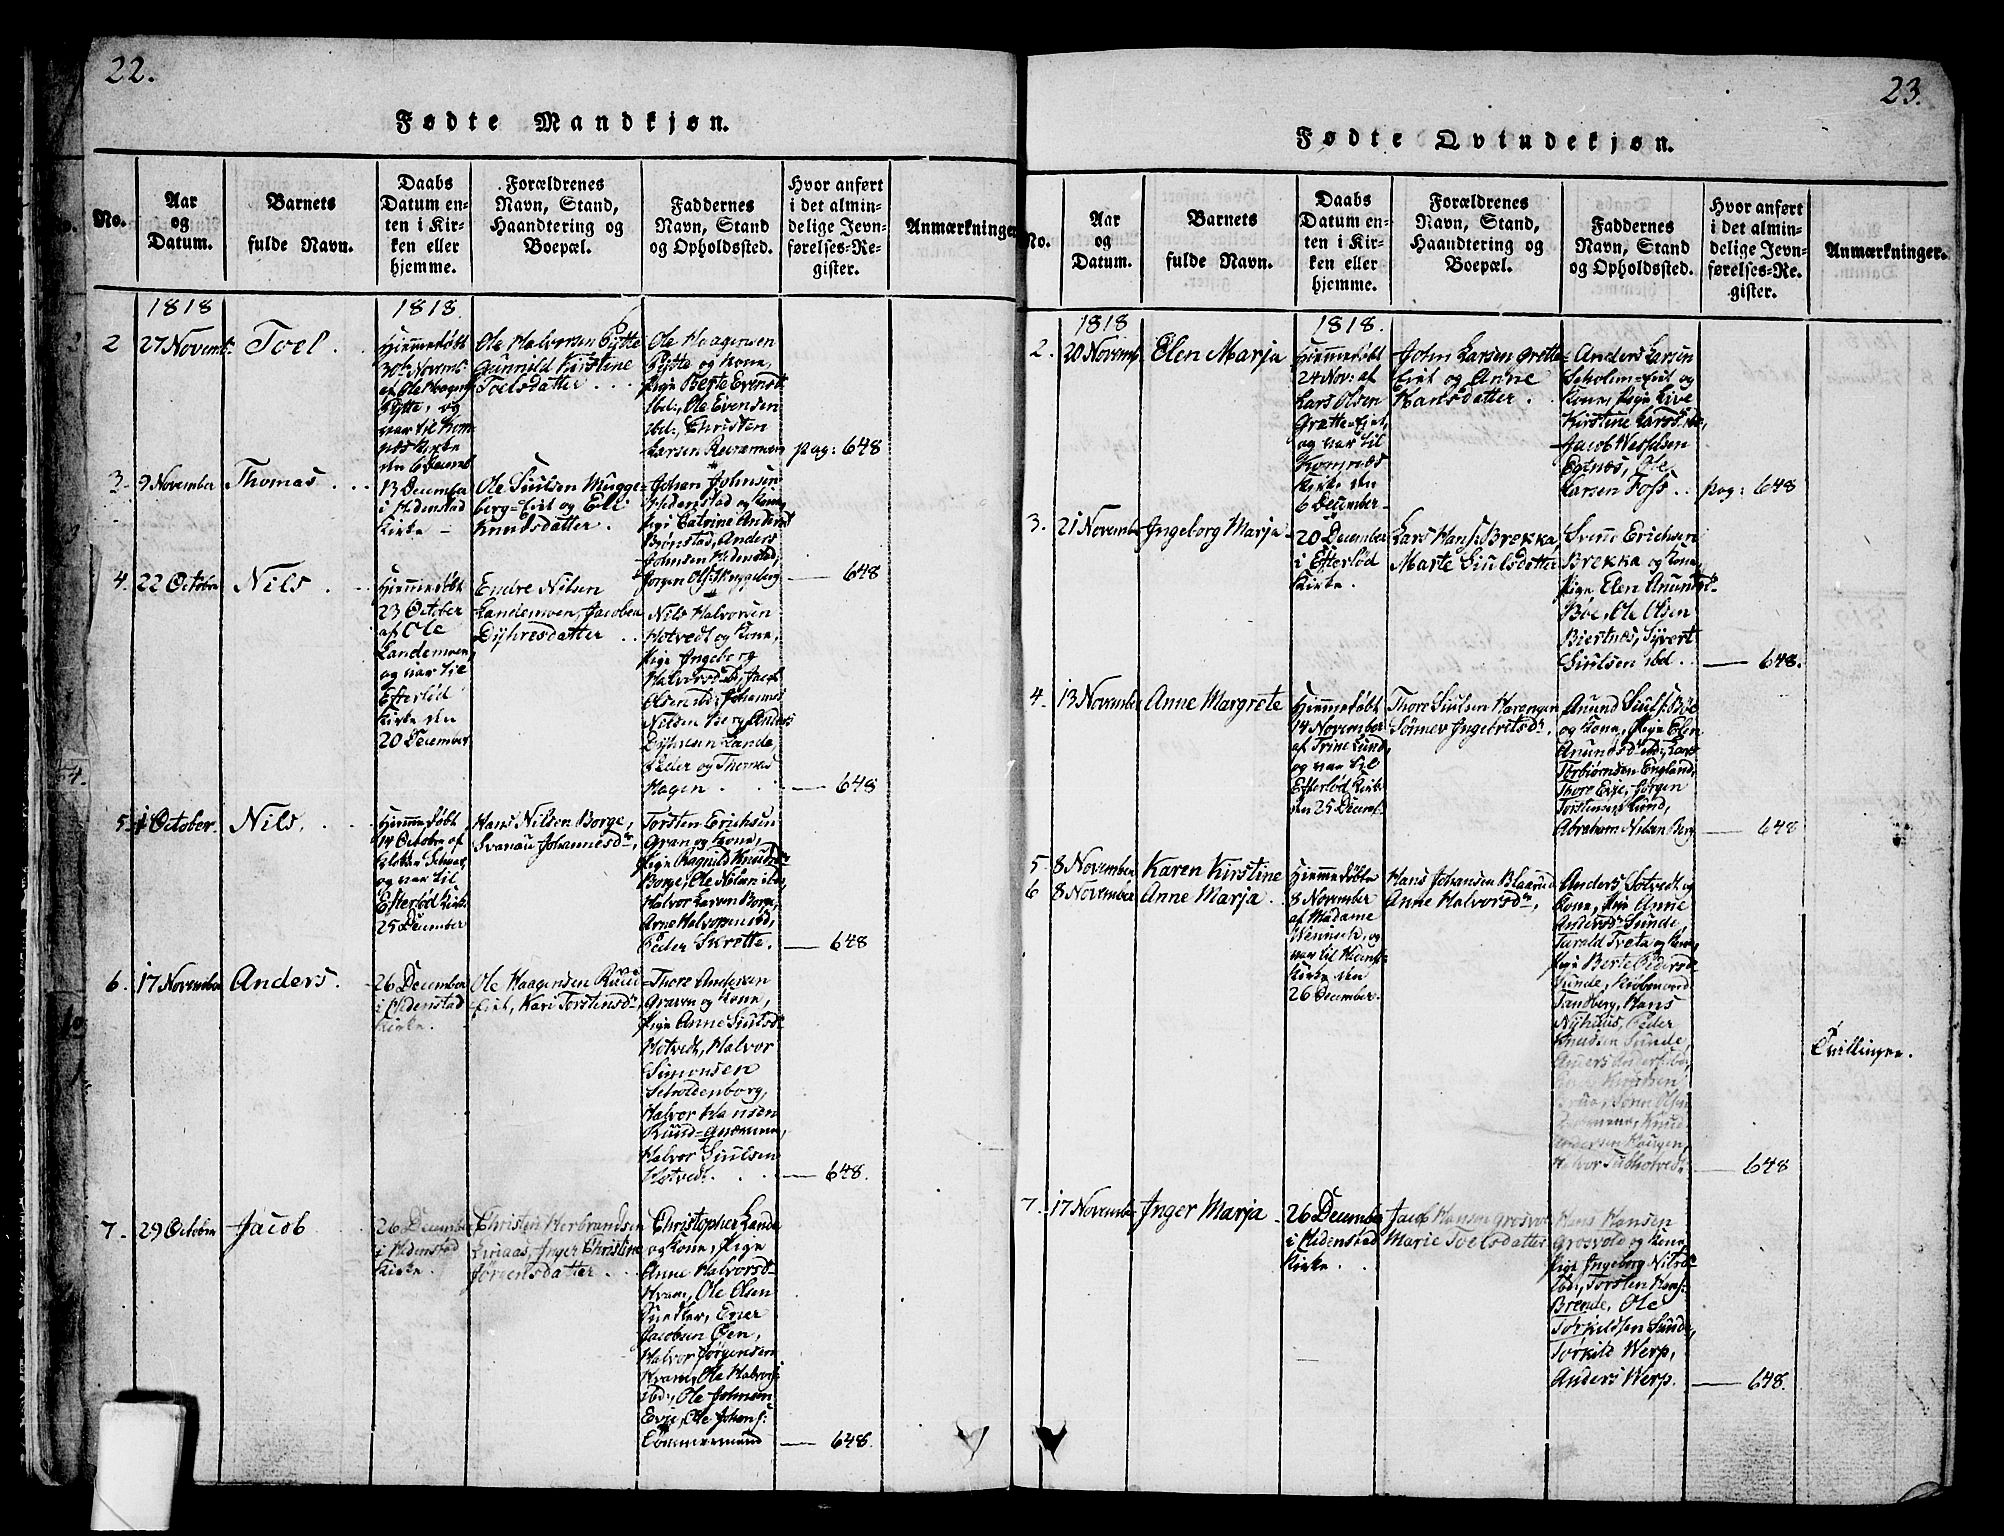 22.
Fødte Mandkjøn.
No.
Aar
og
Datum.
Barnets
fulde Navn.
Daabs
Datum en-
ten i Kir-
ken eller
hjemme.
Forældrenes
Navn, Stand,
Haandtering og
Boepæl.
Faddernes
Navn, Stand
og Opholdssted.
Hvor anført
i det almin-
delige Jevn-
førelses-Re-
gister.
Anmærkninger
1818
1818.
2
27 Novemb:
Toel
Hiemmedøbt
30te Novemb:
af Ole Haagens:
Pytte, og
var til Kom-
næs Kirke
den 6 Decemb
Ole Halvorsen Pytte
Gunnild Kirstine
Toelsdatter
Ole Haagensen
Pytte og Kone,
Pige Berte Evensd:
ibd:, Ole Evensen
ibd:, Christen
Larsen
pag: 648
3.
9 November
Thomas
13 December
i Hedenstad
Kirke
Ole Siulsen Mugge-
berg-Eiet og Eli
Knudsdatter.
Johan Johnsen
Hedenstad og Kone,
Pige Catrine Andersd
Bønstad, Anders
Johnsen Hedenstad,
Jørgen Ols: Muggeberg
648
4.
22 October
Nils
Hiemmedøbt
23 October
af Ole
Landemoen,
og var til
Efterlød
Kirke den
20 December
Endre Nilsen
Landemoen, Jacobea
Dyhresdatter
Nils Halvorsen
Hotvedt og Kone,
Pige Ingeborg
Halvorsd: ibd:, Jacob
Olsen ibd:, Johannes
Nilsen Berg, Anders
Dyhresen Lande,
Peder og Thomas
Hagen
648
5.
1 October.
Nils.
Hiemmedøbt
14 October af
og var til
Efterlød Kirke
25 December
Hans Nilsen Borge,
Svanau Johannesdr,
Torsten Erichsen
Gran og Kone,
Pige Ragnild Knudsdr
Borge, Ole Nilsen ibd,
Halvor Larsen Borge,
Arne Halvorsen ibd,
Peder Skrette.
648
6.
17 November
Anders.
26 December
i Hedenstad
Kirke.
Ole Haagensen Ruud-
Eiet, Kari Torstensdr,
Thore Andersen
Graven og Kone,
Pige Anne Siulsdr
Hotvedt, Halvor
Simonsen
Scholdenborg,
Halvor Hansen
Ruud-
Halvor Siulsen
Hotvedt.
648.
7.
29 October
Jacob
26 December
i Hedenstad
Kirke.
Christen Herbrandsen
Inger Christine
Jørgensdatter
Christopher Lande
og Kone, Pige
Anne Halvorsd
Hvam, Ole Olsen
Ener
Jacobsen Øen,
Halvor Jørgensen
Hvam, Ole Halvors:
ibd:, Ole Johnsen
Evje, Ole Johans:
Tømmermand
648.
23.
Fødte Qvindekjøn.
No.
Aar
og
Datum.
Barnets
fulde Navn.
Daabs
Datum en-
ten i Kir-
ken eller
hjemme.
Forældrenes
Navn, Stand,
Haandtering og
Boepæl.
Faddernes
Navn, Stand
og Opholdssted.
Hvor anført
i det almin-
delige Jevn-
førelses-Re-
gister.
Anmærkninger.
1818
1818.
2.
20 Novemb
Elen Marja
Hiemmedøbt
24 Nov: af
Lars Olsen
Grette-Eiet,
og var til
Komnæs
Kirke den
6 December
John Larsen Grette-
Eiet og Anne
Hansdatter.
Anders Larsen
Eiet og
Kone, Pige Live
Kirstine Larsd. ibd,
Jacob
Egtnæs, Ole
Larsen Foss
pag: 648
3.
21 November
Ingeborg Marja
20 December
i Efterlød
Kirke.
Lars Hans: Brekka,
Marte Siulsdatter
Svend Erichsen
Brekka og Kone,
Pige Elen Anundsd
Bøe, Ole Olsen
Biertnæs, Syvert
Siulsen ibd.
648.
4.
13 November
Anne Margrete
Hiemmedøbt
14 November
af Trine Lund,
og var til
Efterlød Kirke
den 25 Decemb:
Thore Siulsen Harengen
Sønnev Ingebretsdr
Anund Siuls: Bøe
og Kone, Pige Elen
Anundsd ibd;, Lars
Torbiørnsen England,
Thore Evje, Jørgen
Torstensen Lund,
Abraham Nilsen Berg
648
5
8 November
Karen Kirstine
6
8 November
Anne Marja
Hiemmedøbte
8 November
af Madame
og
var til
Kirke den
26 December.
Hans Johansen Blaarud,
Anne Halvorsdr,
Anders Sotvedt og
Kone, Pige Anne
Andersdr Sunde
Tarald Tveta og Kone,
Pige Berte Pedersd
Sunde,
Tandberg, Hans
Nyhuus, Peder
Knudsen Sunde,
Knud
Andersen Haugen,
Halvor
648
Tvillinger.
7.
17 November
Inger Marja
26 December
i Hedenstad
Kirke.
Jacob Hansen Grosvold
Marie Toelsdatter
Hans Hansen
Grosvold og Kone,
Pige Ingeborg Nilsdr
ibd:, Torsten Hans:
Brende, Ole
Torkildsen Sunde,
Torkild Werp,
Anders Werp.
648.